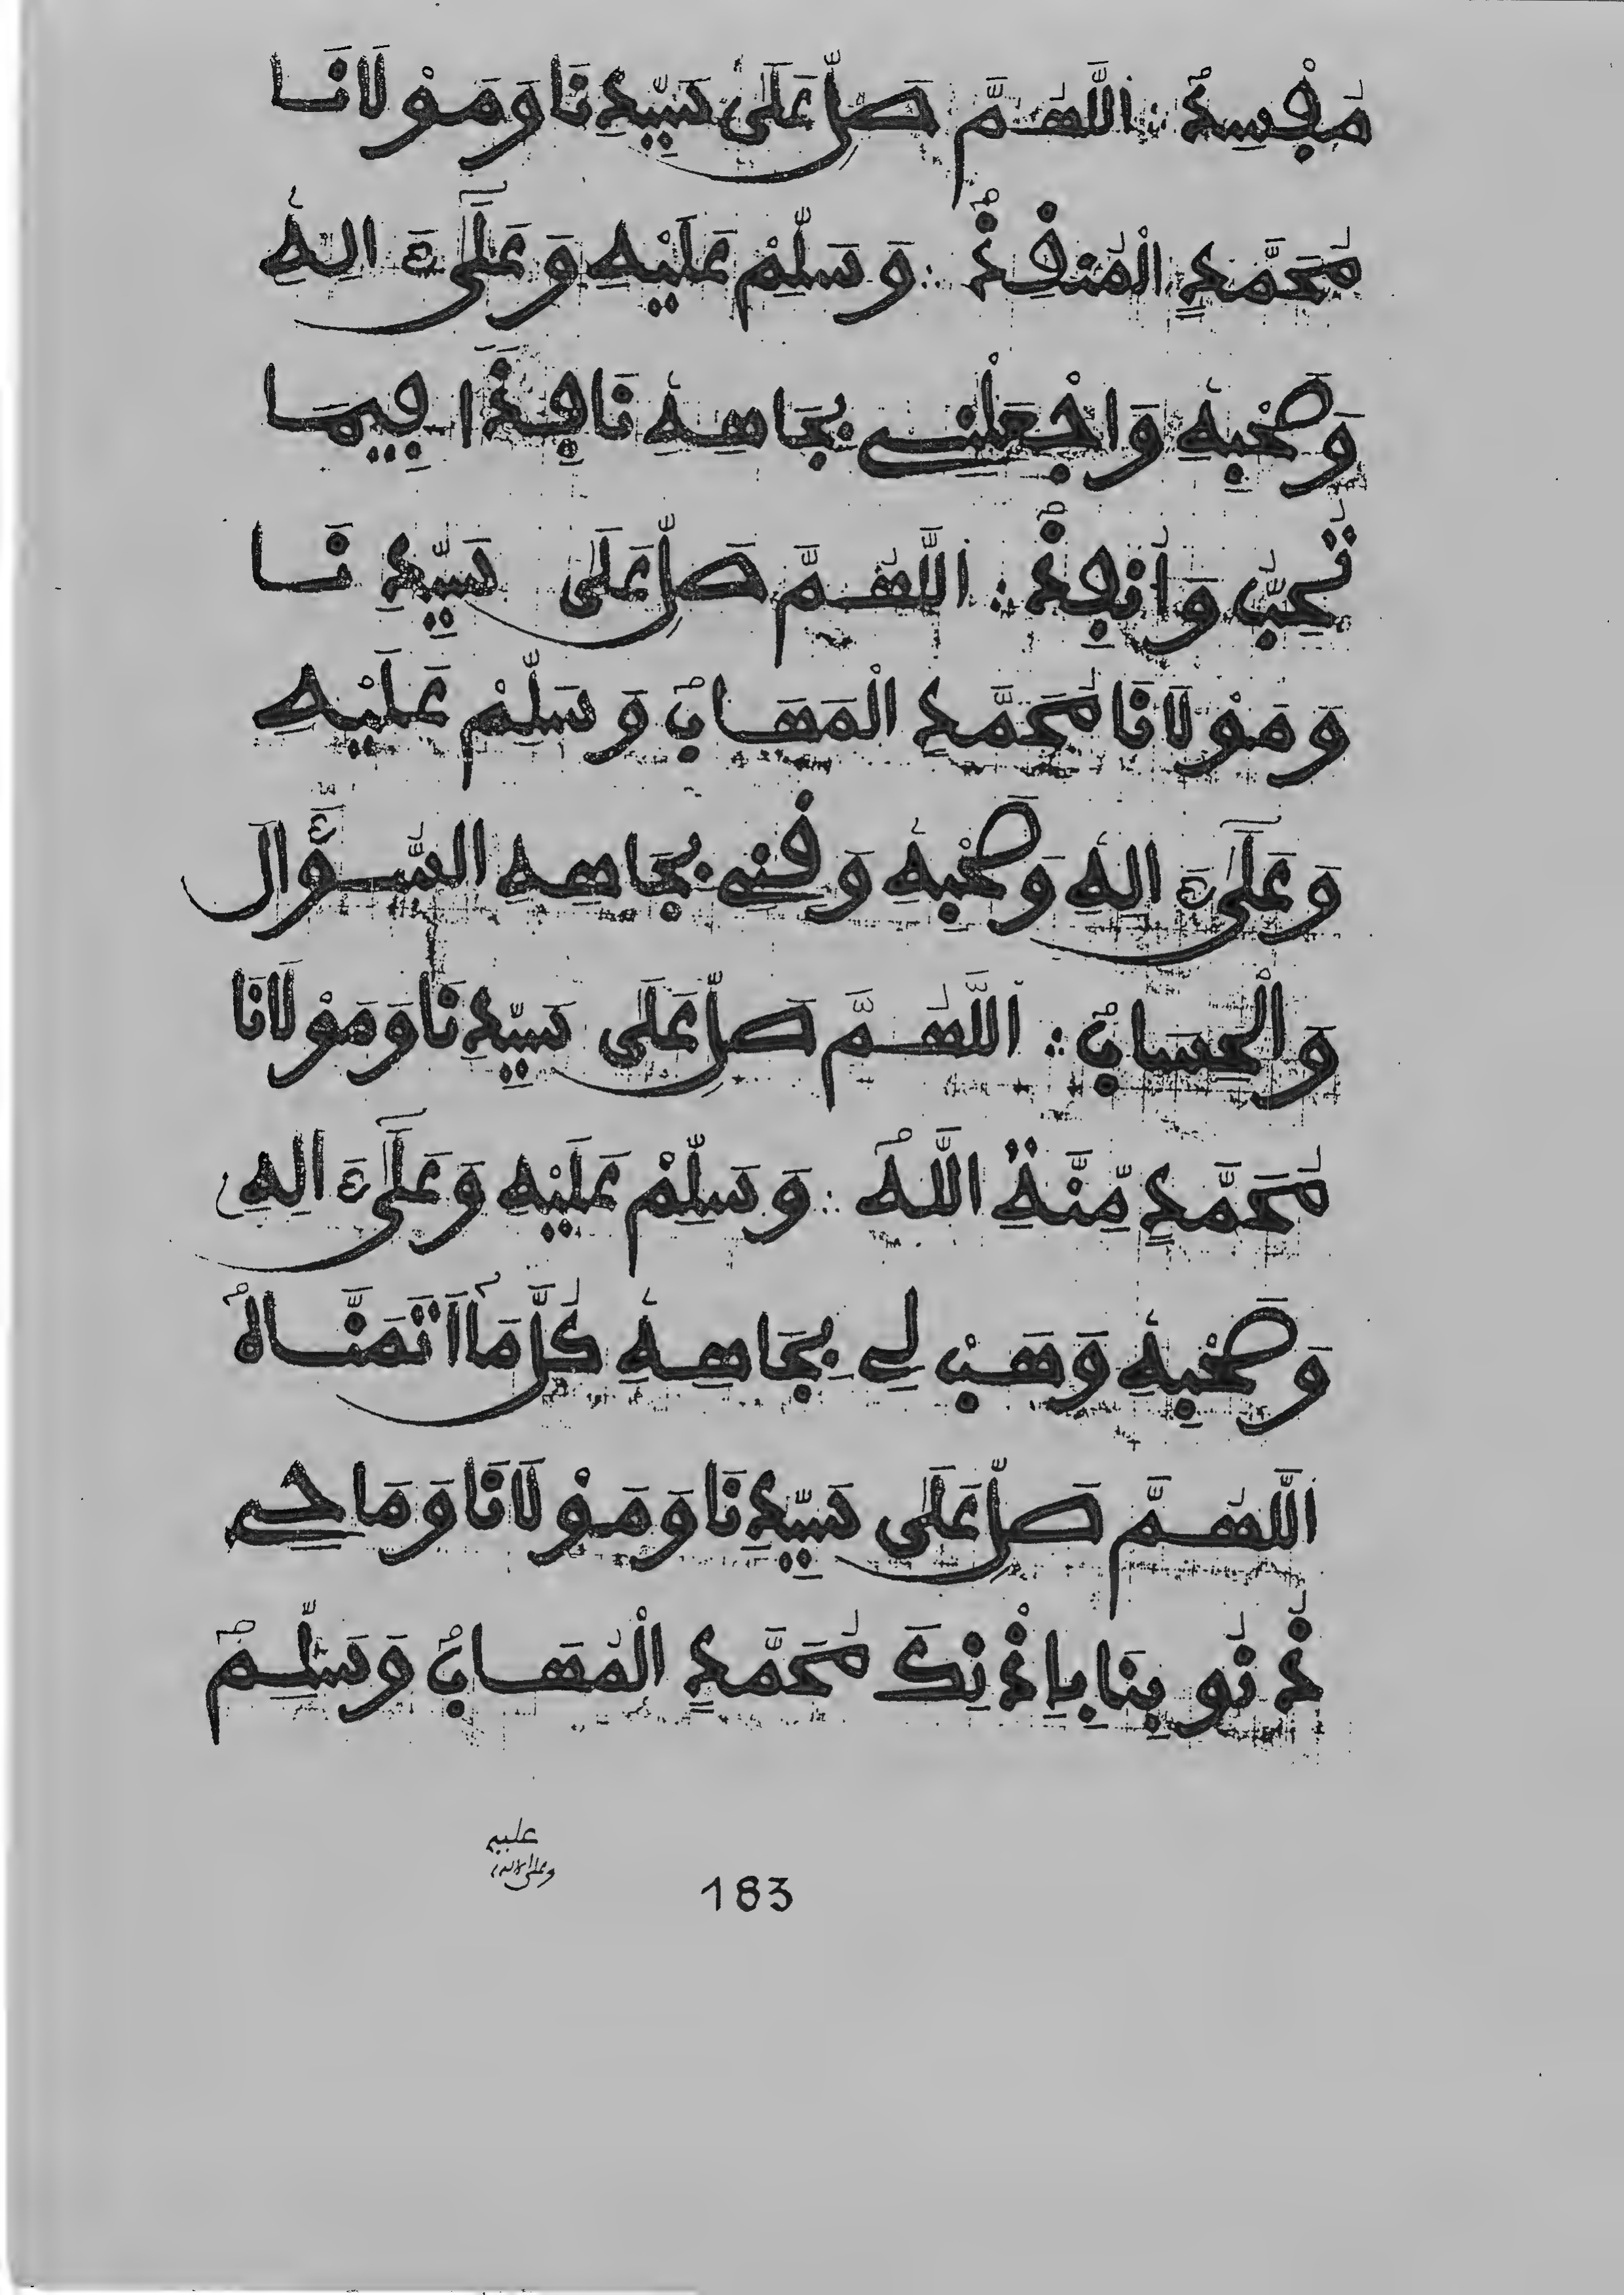 مُفْسِدُ ؞ اَللَّهُمَّ صَلِّ عَلَىٰ سَيِّدِنَا وَمَوْلَانَا
مُحَمَّدٍ الْمُنقِذْ ؞ وَسَلِّمْ عَلَيْهِ وَعَلَىٰٓ ءَالِهِ
وَصَحْبِهِ وَاجْعَلْنِي بِجَاهِهِ نَافِذًا فِيمَا
تُحِبُّ وَأَنْفِذْ ؞ اَللَّهُمَّ صَلِّ عَلَى سَيِّدِنَا
وَمَوْلَانَا مُحَمَّدٍ الْمَهَابُ وَسَلِّمْ عَلَيْهِ
وَعَلَىٰٓ ءَالِهِ وَصَحْبِهِ وَقِنِي بِجَاهِهِ السُّؤَال
وَالْحِسَابُ ؞ اَللَّهُمَّ صَلِّ عَلَى سَيِّدِنَا وَمَوْلَانَا
مُحَمَّدٍ مِّنَّةِ اللَّهُ ؞ وَسَلِّمْ عَلَيْهِ وَعَلَىٰٓ ءَالِهِ
وَصَحْبِهِ وَهَبْ لِي بِجَاهِهِ كُلَّ مَا أَتَمَنَّاهُ
اَللَّهُمَّ صَلِّ عَلَى سَيِّدِنَا وَمَوْلَانَا وَمَاحِي
ذُنُوبِنَا بِإِذْنِكَ مُحَمَّدٍ الْمُهَابُ وَسَلِّمْ
عليه
وعلى اله
183